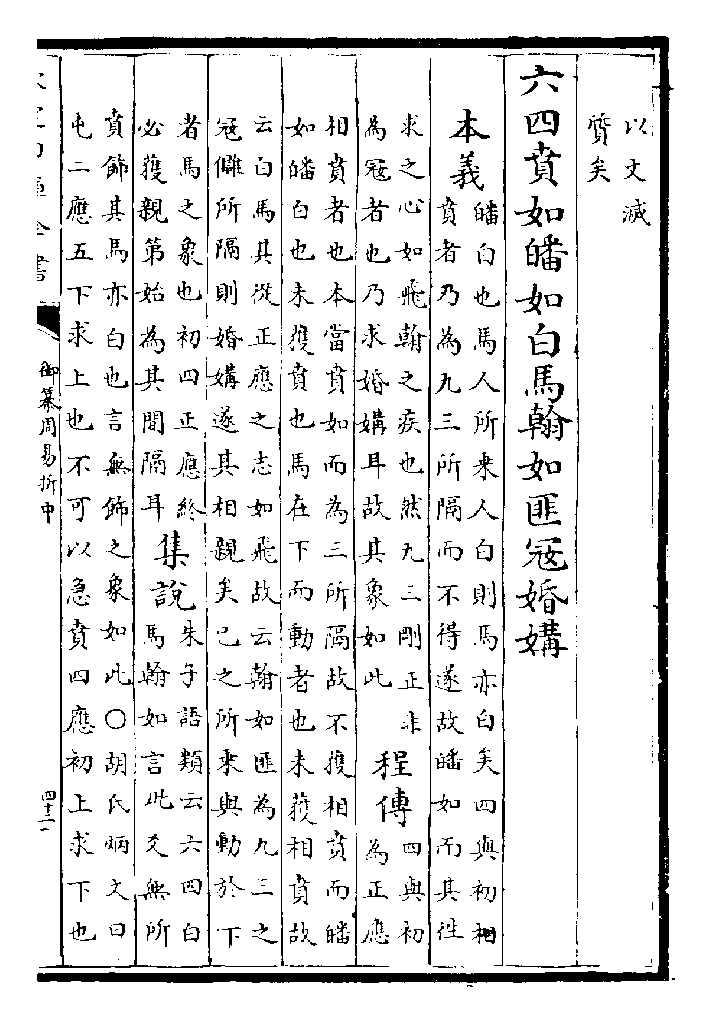 以文滅
質矣
六四賁如皤如白馬翰如匪冦婚媾
本義
皤白也馬人所乗人白則馬亦白矣四與初相
賁者乃為九三所隔而不得遂故皤如而其徃
求之心如飛翰之疾也然九三剛正非
為冦者也乃求婚媾耳故其象如此
程傳
四與初
為正應
相賁者也本當賁如而為三所隔故不獲相賁而皤
如皤白也未獲賁也馬在下而動者也未獲相賁故
云白馬其從正應之志如飛故云翰如匪為九三之
冦讎所隔則婚媾遂其相親矣己之所乗與動於下
者馬之象也初四正應終
必獲親第始為其間隔耳
集說
朱子語類云六四白
馬翰如言此爻無所
賁飾其馬亦白也言無飾之象如此〇胡氏炳文曰
屯二應五下求上也不可以急賁四應初上求下也
御纂周易折中